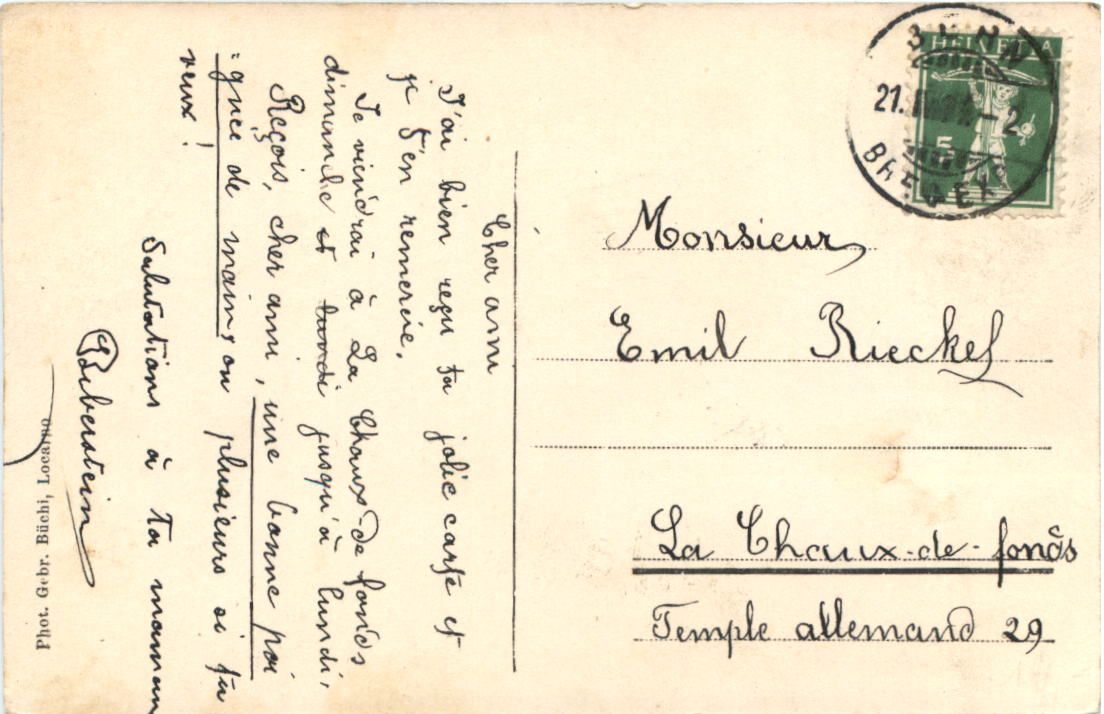 Cher ami
J'ai bien reçu ta jolie carte et
je t'en remercie.
Je viendrai à La Chaux-de fonds
dimanche et lundi jusqu'à lundi,
Reçois, cher ami, une bonne poi
-gnée de mains ou plusieurs si tu
veux!
Salutations à ta maman
Biberstein
Phot. Gebr. Büchi, Locarno
HELVETIA
5
21.
-2
Monsieur
Emil Rieckel
La Chaux-de-fonds
Temple allemand 29